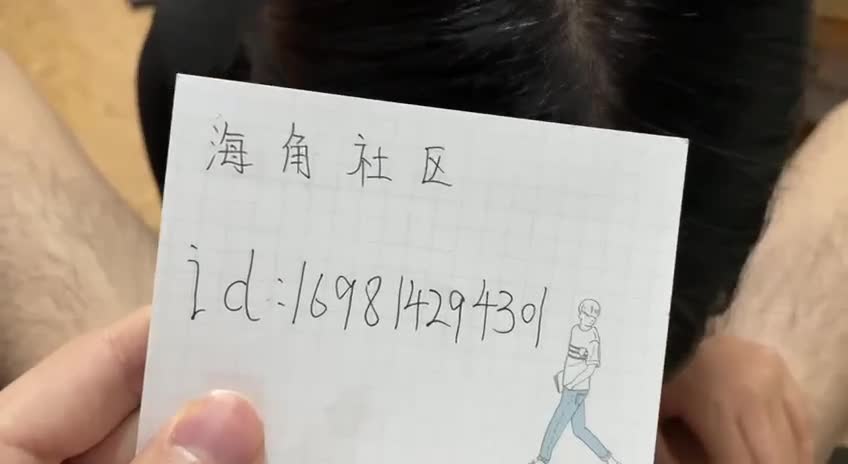 海角社区
id:169814294301